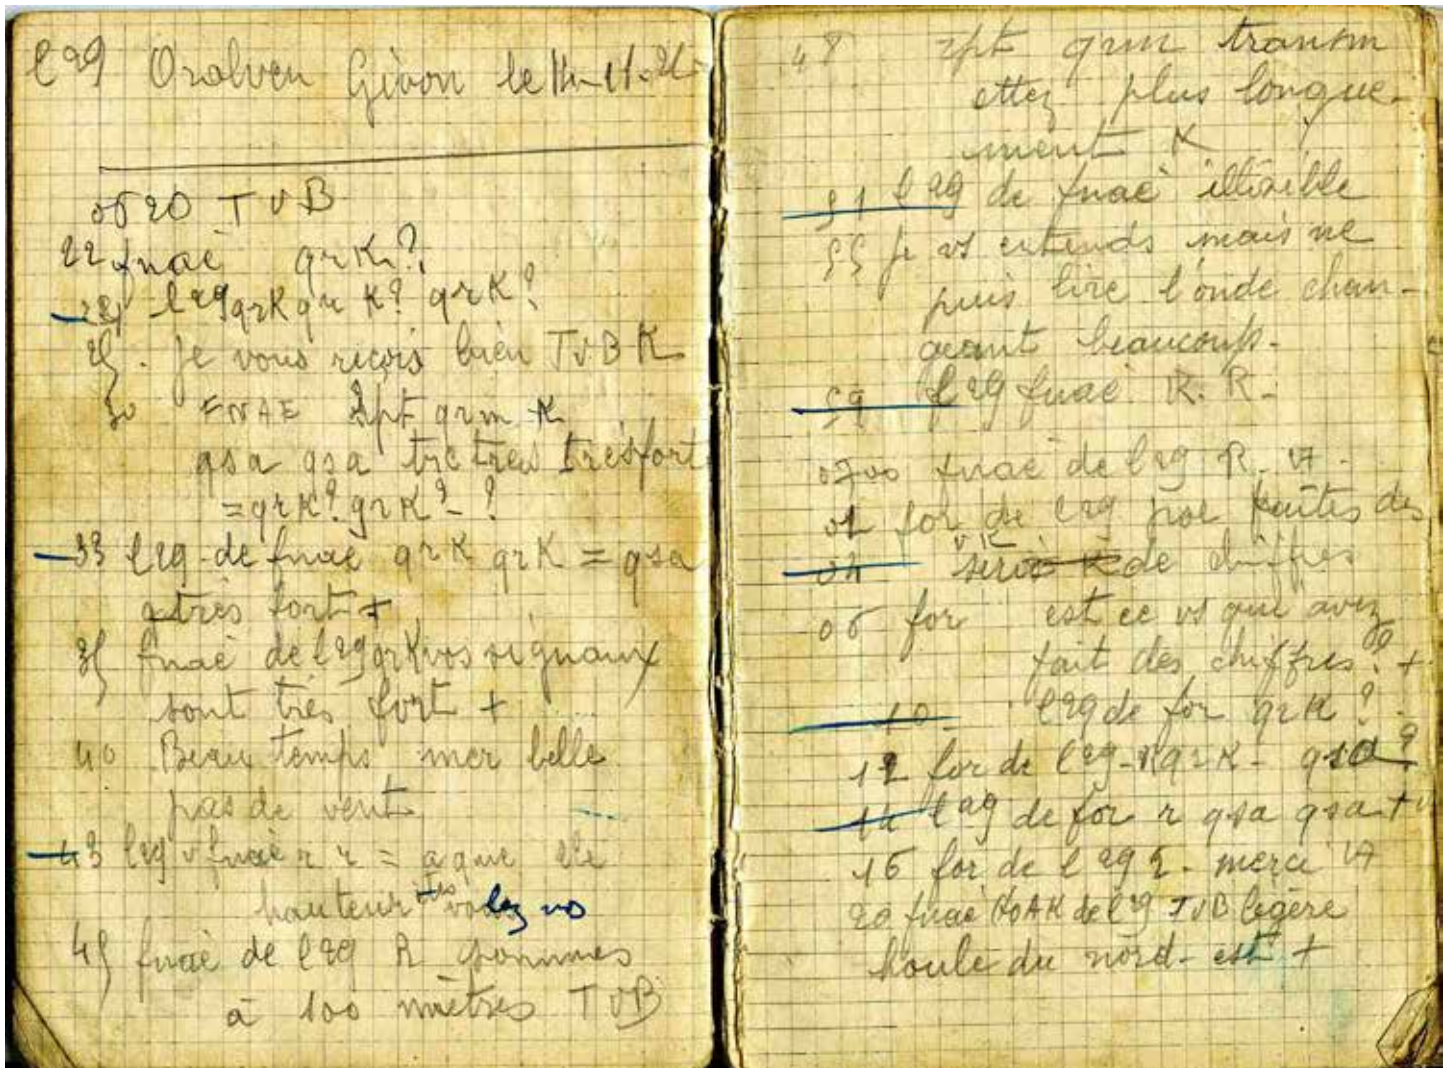 l29 Orolven Givon le
0620 TVB
22 fnaé qrK?
24 l29 qrK qrK? qrK?
25. Je vous reçois bien TVB K
30 FNAE qrm K
qsa qsa tre tres très fort
= qrK? qrK? - ?
33 l29 de fnaé qrK qrK = qsa
très fort +
35 fnaé de l29 qrK vos signaux
sont très fort +
40 Beau temps mer belle
pas de vent
43 l29 v fnaé r r = a que lle
hauteur vo lez vs
45 fnaé de l29 R sommes
à 100 mètres TVB
48 rpt qrm transm
ettez plus longue-
ment K
51 l29 de fnaé illisible
55 Je vs entends mais ne
puis lire l'onde chan-
geant beaucoup.
59 l29 fnaé R. R.
0700 fnaé de l29 R. VA.
01 for de l29 faites des
04 série de chiffres
06 for est ce vs qui avez
fait des chiffres? +
10 l29 de for qrK?
12 for de l29 - R qrK - qsa?
14 l29 de for r qsa qsa +
16 for de l29 r. merci VA
20 fnaé de l29 TVB légère
houle du nord-est +